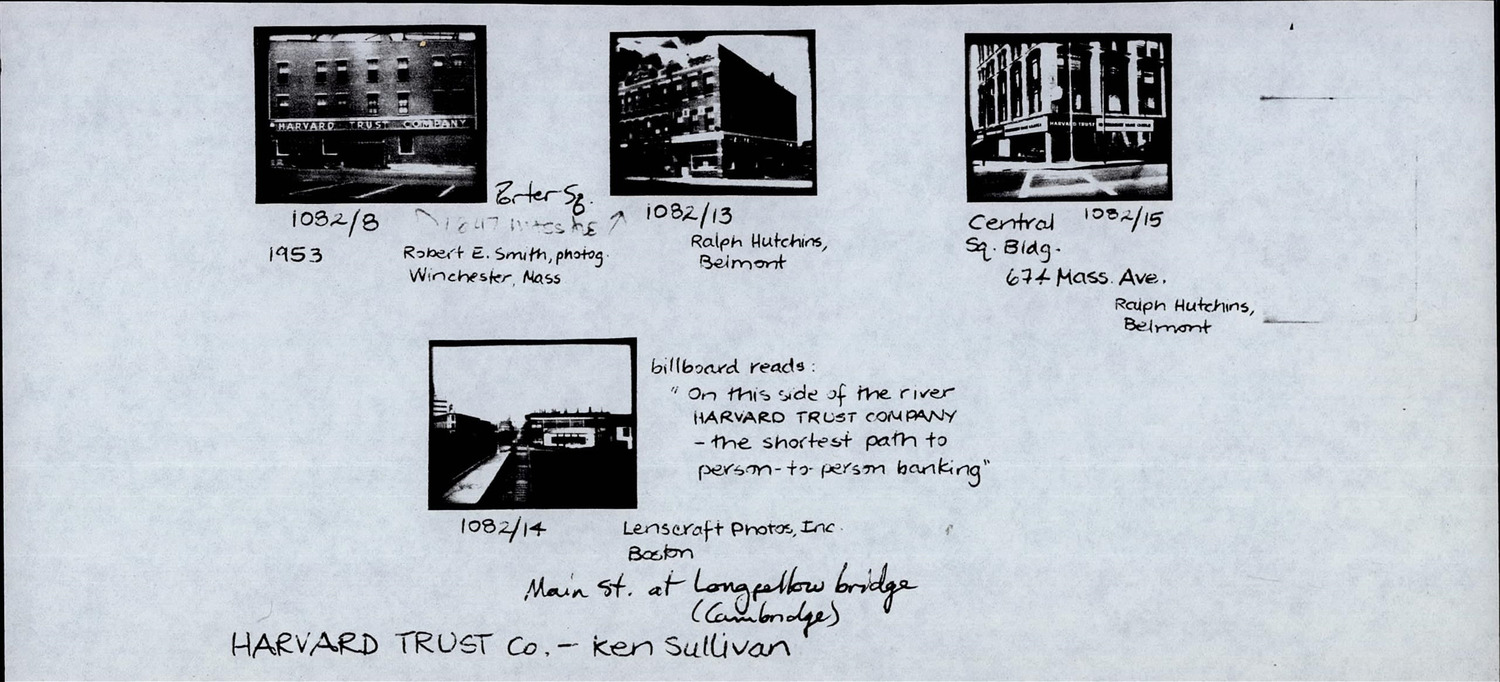 HARVARD TRUST COMPANY
HARVARD TRUST
1082/8
1953
Porter Sq.
Robert E. Smith, photog.
Winchester, Mass
1082/13
Ralph Hutchins,
Belmont
Central 1082/15
Sq. Bldg.
674 Mass. Ave.
Ralph Hutchins,
Belmont
billboard reads:
"On this side of the river
HARVARD TRUST COMPANY
- the shortest path to
person-to-person banking"
1082/14
Lenscraft Photos, Inc.
Boston
Main St. at Longfellow bridge
(Cambridge)
HARVARD TRUST Co. - Ken Sullivan